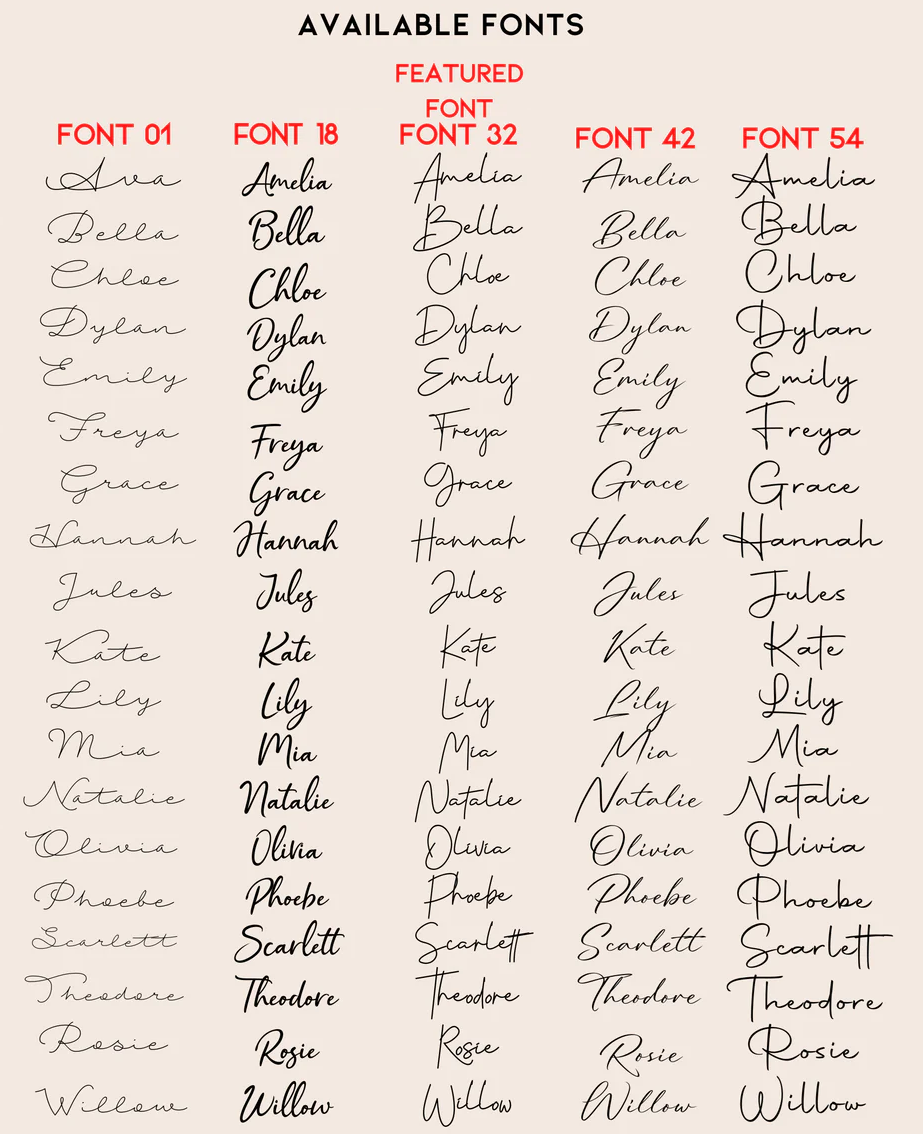 AVAILABLE FONTS
FEATURED
FONT
FONT 01 FONT 18 FONT 32 FONT 42 FONT 54
Ava Amelia Amelia Amelia Amelia
Bella Bella Bella Bella Bella
Chloe Chloe Chloe Chloe Chloe
Dylan Dylan Dylan Dylan Dylan
Emily Emily Emily Emily Emily
Freya Freya Freya Freya Freya
Grace Grace Grace Grace Grace
Hannah Hannah Hannah Hannah Hannah
Jules Jules Jules Jules Jules
Kate Kate Kate Kate Kate
Lily Lily Lily Lily Lily
Mia Mia Mia Mia Mia
Natalie Natalie Natalie Natalie Natalie
Olivia Olivia Olivia Olivia Olivia
Phoebe Phoebe Phoebe Phoebe Phoebe
Scarlett Scarlett Scarlett Scarlett Scarlett
Theodore Theodore Theodore Theodore Theodore
Rosie Rosie Rosie Rosie Rosie
Willow Willow Willow Willow Willow